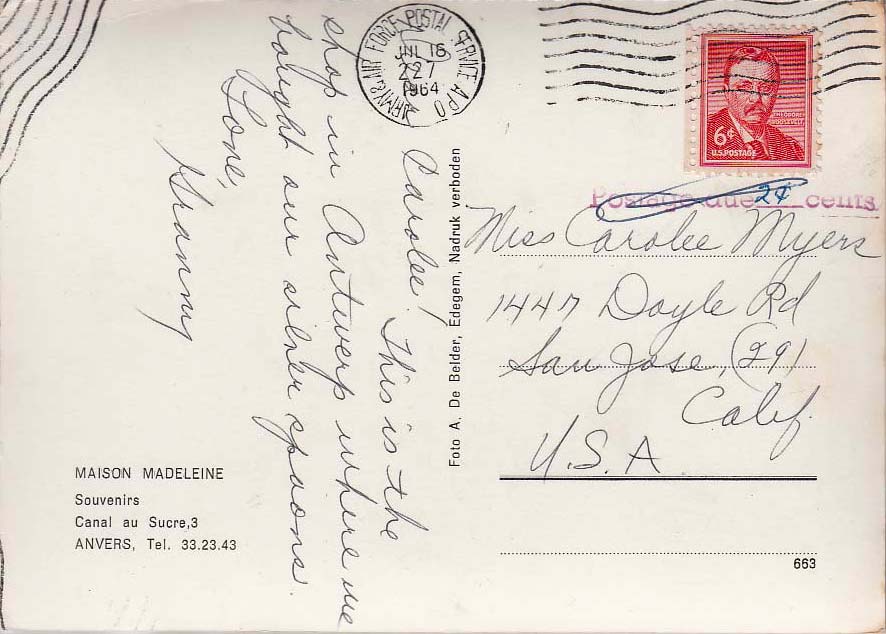 ARMY & AIR FORCE POSTAL SERVICE APO
JUL 16
227
1964
THEODORE
ROOSEVELT
6¢
U.S. POSTAGE
Postage due 2¢ cents
Carolee! This is the
shop in Antwerp where we
bought our silver spoons.
Love,
Granny
Miss Carolee Myers
1447 Doyle Rd
San Jose, (29)
Calif.
U.S.A
Foto A. De Belder, Edegem, Nadruk verboden
MAISON MADELEINE
Souvenirs
Canal au Sucre,3
ANVERS, Tel. 33.23.43
663